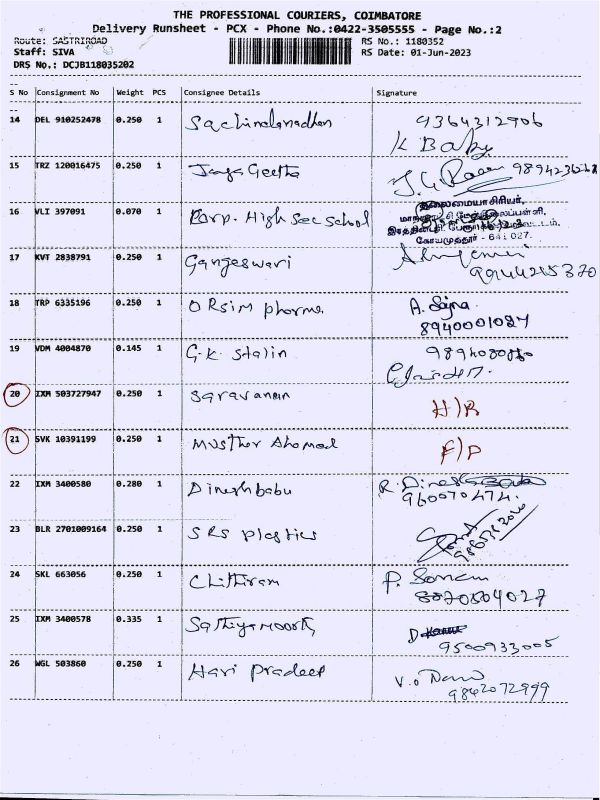 THE PROFESSIONAL COURIERS, COIMBATORE
Delivery Runsheet - PCX - Phone No.:0422-3505555 - Page No.:2
Route: SASTRIROAD RS No.: 1180352
Staff: SIVA RS Date: 01-Jun-2023
DRS No,: DCJB118035202
S No Consignment No Weight PCS Consignee Details Signature
14 DEL 910252478 0.250 1 Sachindanadhan 9364312906
K Baby
15 TRZ 120016475 0.250 1 Jaya Geetha J. G
16 VLI 397091 0.070 1 Corp. High Sec School தலைமையாசிரியர்,
கோயமுத்தூர் - 641 027.
17 KVT 2838791 0.250 1 Gangeswari
9944215370
18 TRP 6335196 0.250 1 ORSIM pharma A. Sajna
8940001087
19 VDM 4004870 0.145 1 G.K. Stalin
20 IXM 503727947 0.250 1 Saravanan H/R
21 SVK 10391199 0.250 1 Musther Ahamad F/P
22 IXM 3400580 0.280 1 Dineshbabu R. Dinesh
960070474.
23 BLR 2701009164 0.250 1 SRS Plastics
24 SKL 663056 0.250 1 Chithiram P.
8870804027
25 IXM 3400578 0.335 1 Sathiyamoorthy D
9500933005
26 WGL 503860 0.250 1 Hari Pradeep V.
9842072999